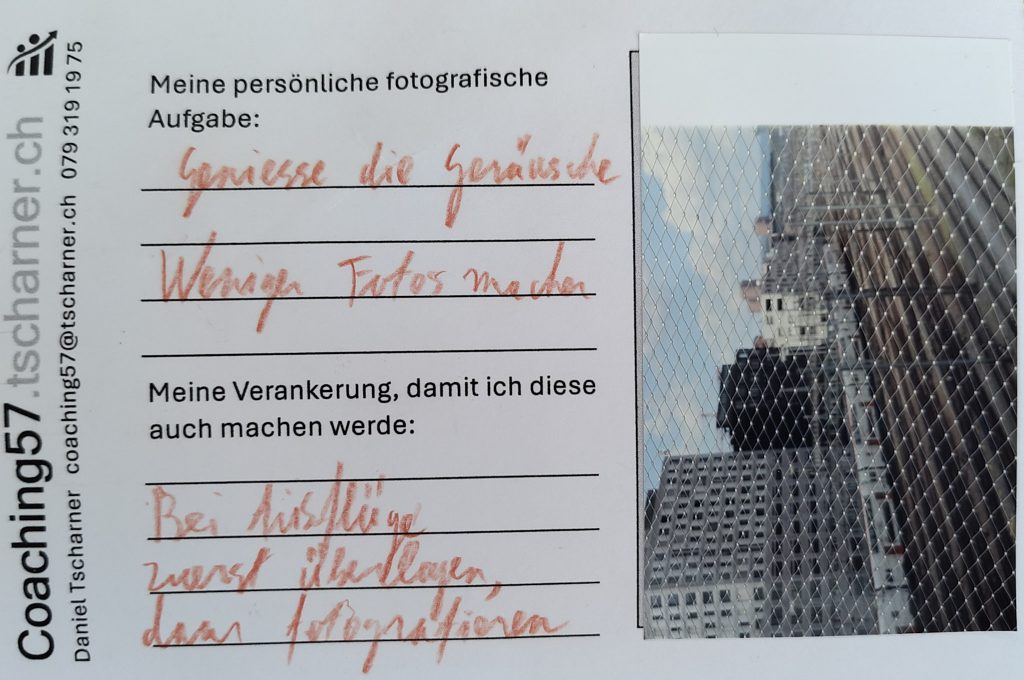 Coaching57.tscharner.ch
Daniel Tscharner coaching57@tscharner.ch 079 319 19 75
Meine persönliche fotografische
Aufgabe:
Geniesse die Geräusche
Weniger Fotos machen
Meine Verankerung, damit ich diese
auch machen werde:
Bei Ausflüge
zuerst überlegen,
dann fotografieren